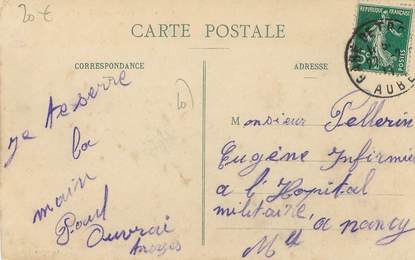 20 €
CARTE POSTALE
CORRESPONDANCE
ADRESSE
REPUBLIQUE FRANÇAISE
POSTES
AUBE
je te serre
la
main
Paul
Monsieur Pellerin
Eugène Infirmier
a l'Hopital
militaire, a nancy
Mlle